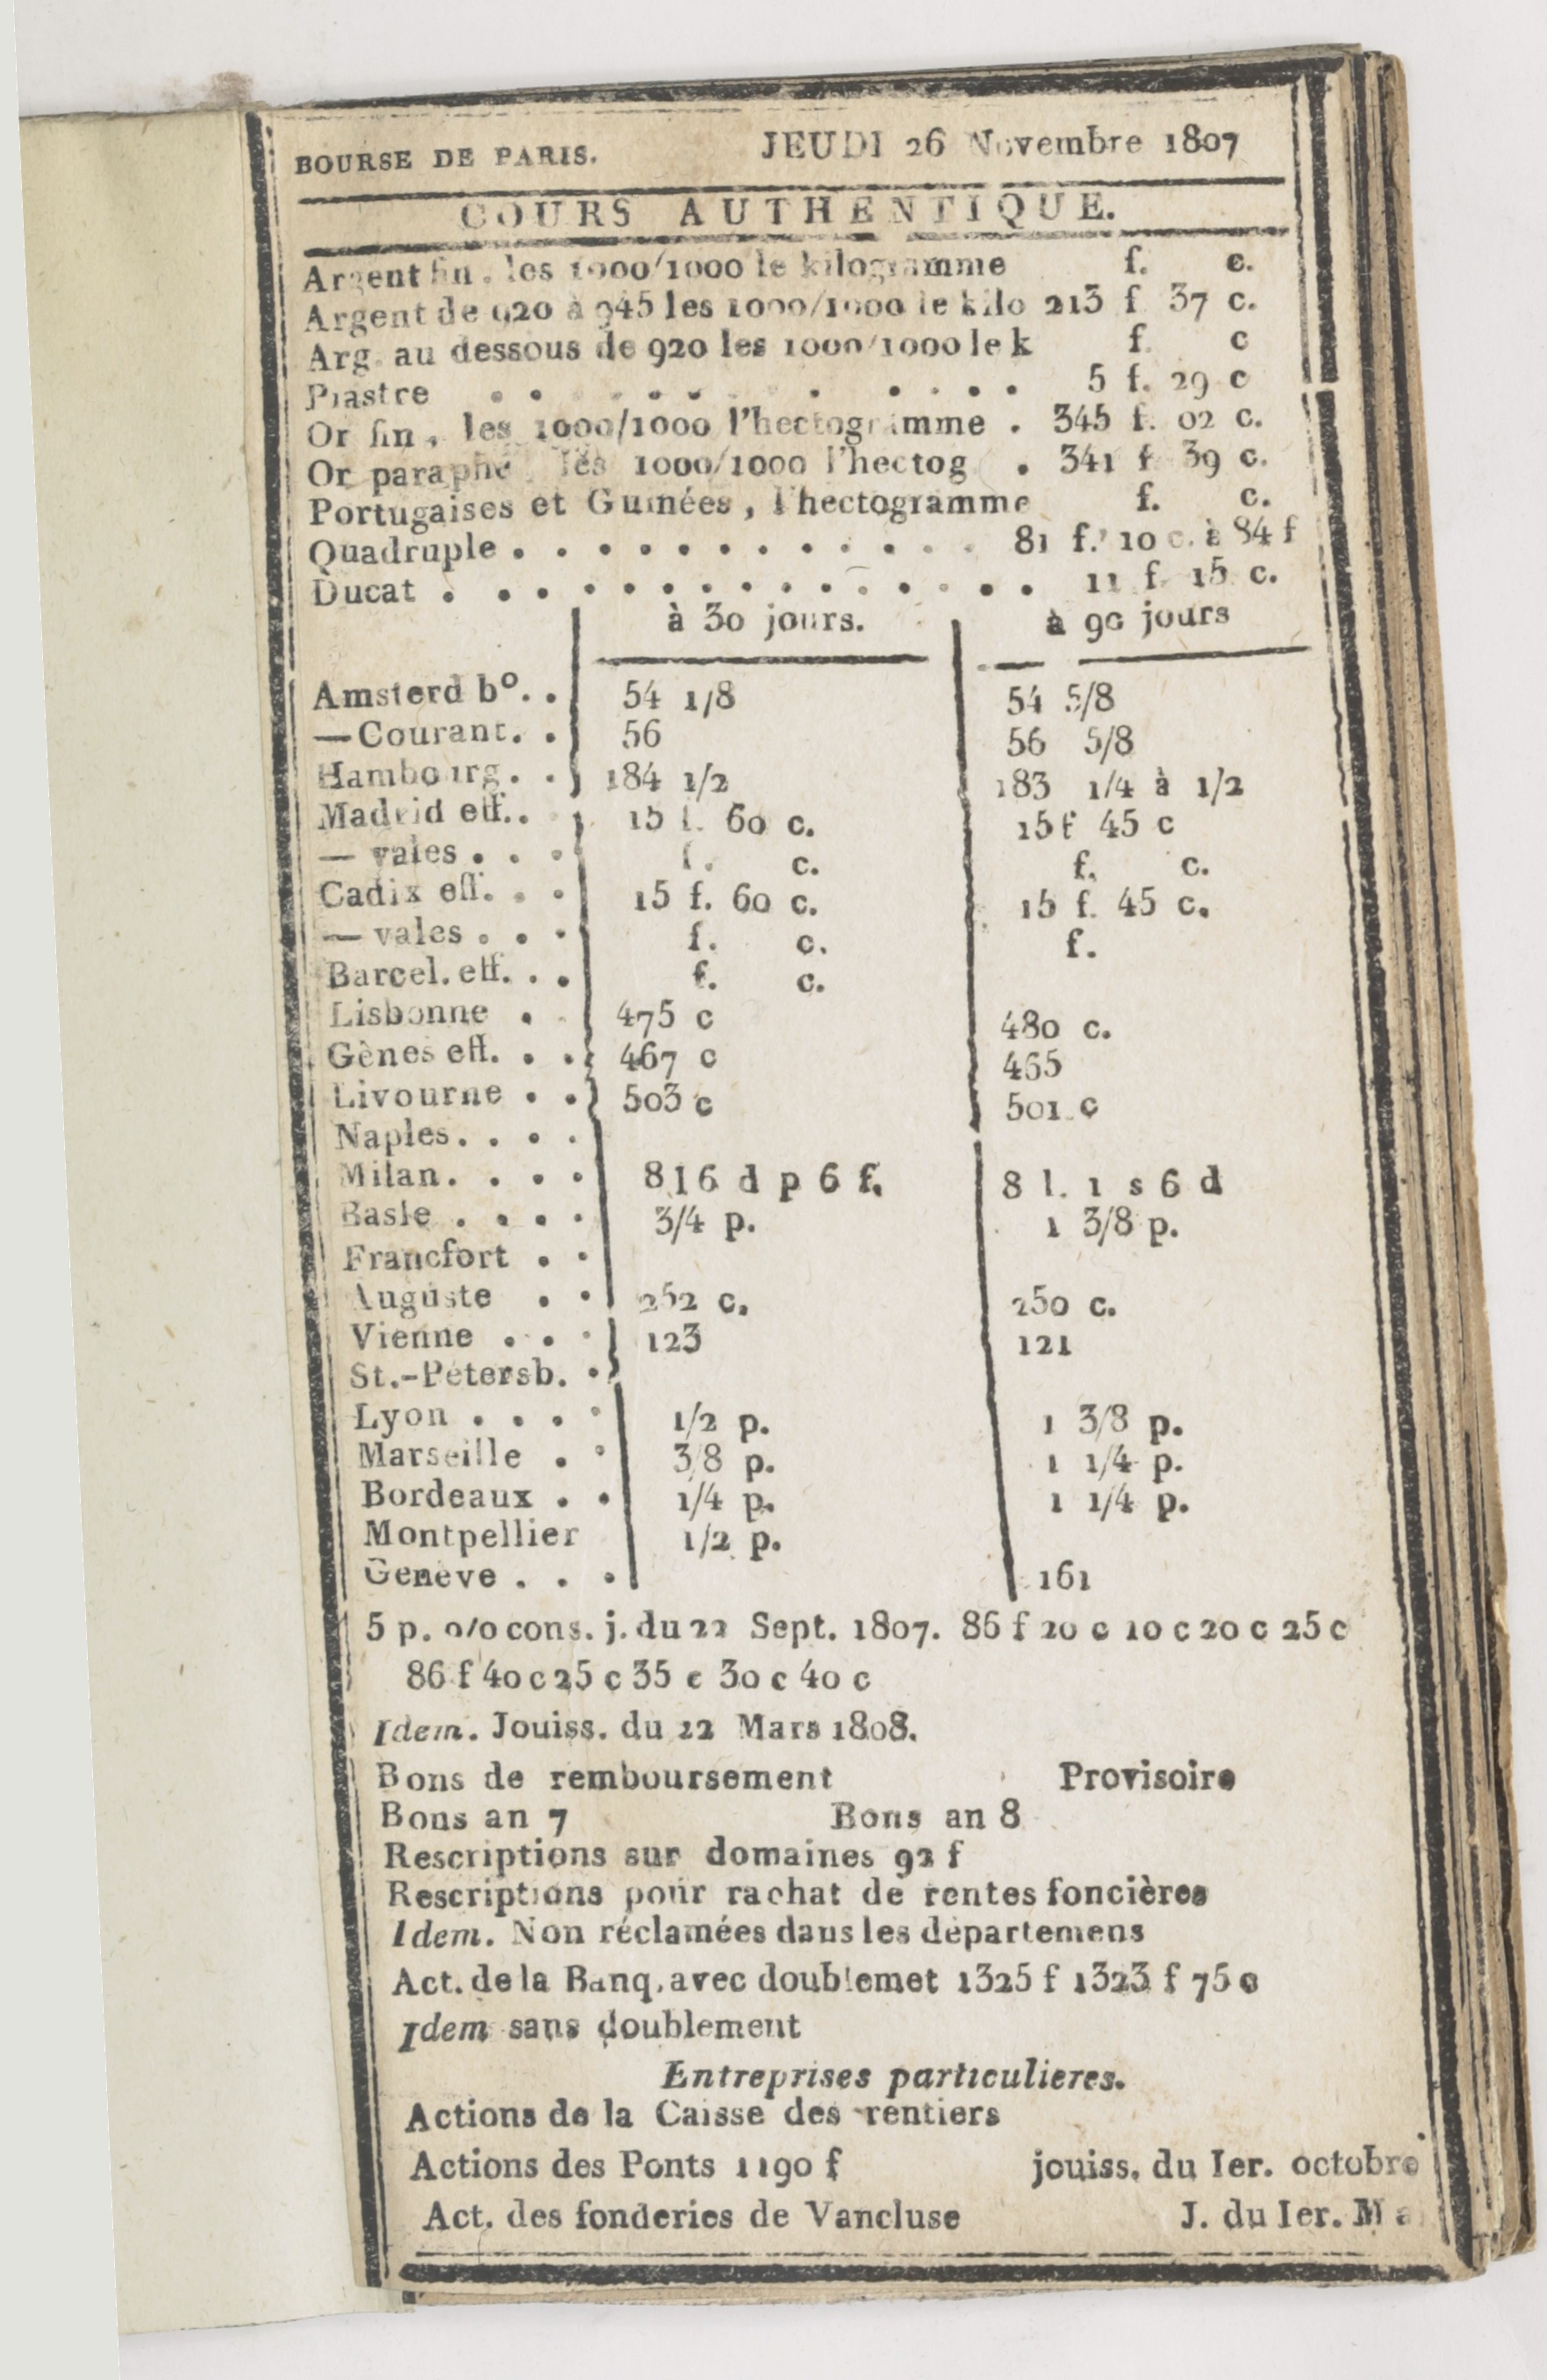 BOURSE DE PARIS. JEUDI 26 Novembre 1807
COURS AUTHENTIQUE.
Argent fin. les 1000/1000 le kilogramme f. c.
Argent de 920 à 945 les 1000/1000 le kilo 213 f 37 c.
Arg. au dessous de 920 les 1000/1000 le k f. c
Piastre . . . . . . . . . . 5 f. 29 c
Or fin, les 1000/1000 l'hectogramme . 345 f. 02 c.
Or paraphé les 1000/1000 l'hectog . 341 f 39 c.
Portugaises et Guinées, l'hectogramme f. c.
Quadruple . . . . . . . . . . . . 81 f. 10 c. à 84 f
Ducat . . . . . . . . . . . . . . 11 f. 15 c.
à 30 jours. à 90 jours
Amsterd b°. . 54 1/8 54 5/8
—Courant. . 56 56 5/8
Hambourg. . 184 1/2 183 1/4 à 1/2
Madrid eff.. 15 f. 60 c. 15 f 45 c
— vales . . . f. c. f. c.
Cadix eff. . . 15 f. 60 c. 15 f. 45 c.
— vales . . . f. c. f.
Barcel. eff. . . f. c.
Lisbonne . . 475 c 480 c.
Gènes eff. . . 467 c 465
Livourne . . 503 c 501 c
Naples. . . .
Milan. . . . 8 l 6 d p 6 f. 8 l. 1 s 6 d
Basle . . . . 3/4 p. 1 3/8 p.
Francfort . .
Auguste . . 252 c. 250 c.
Vienne . . . 123 121
St.-Pétersb. .
Lyon . . . . 1/2 p. 1 3/8 p.
Marseille . . 3/8 p. 1 1/4 p.
Bordeaux . . 1/4 p. 1 1/4 p.
Montpellier 1/2 p.
Genève . . . 161
5 p. o/o cons. j. du 22 Sept. 1807. 86 f 20 c 10 c 20 c 25 c
86 f 40 c 25 c 35 c 30 c 40 c
Idem. Jouiss. du 22 Mars 1808.
Bons de remboursement Provisoire
Bons an 7 Bons an 8
Rescriptions sur domaines 92 f
Rescriptions pour rachat de rentes foncières
Idem. Non réclamées dans les départemens
Act. de la Banq. avec doublemet 1325 f 1323 f 75 c
Idem sans doublement
Entreprises particulieres.
Actions de la Caisse des rentiers
Actions des Ponts 1190 f jouiss. du Ier. octobre
Act. des fonderies de Vancluse J. du Ier.